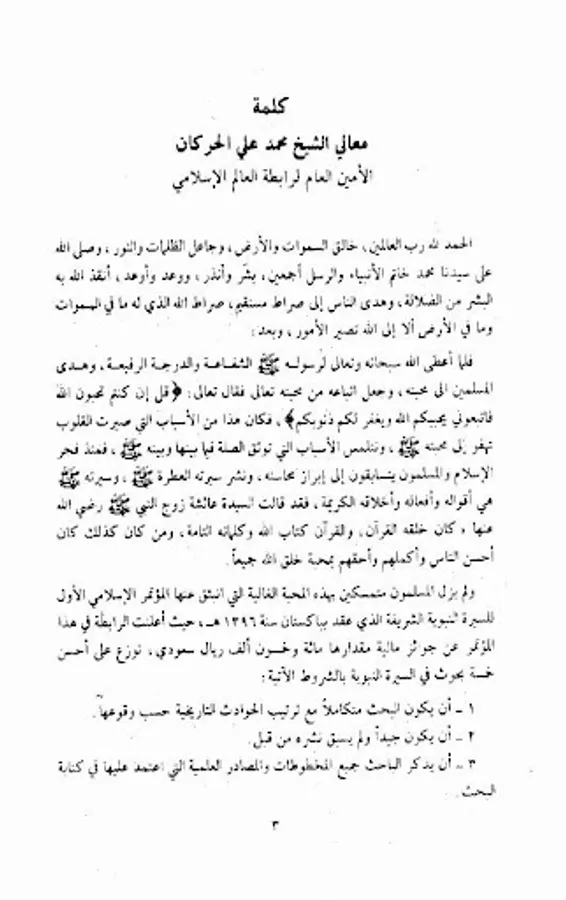 كلمة
معالي الشيخ محمد علي الحركان
الأمين العام لرابطة العالم الإسلامي
الحمد لله رب العالمين، خالق السموات والأرض، وجاعل الظلمات والنور، وصلى الله
على سيدنا محمد خاتم الأنبياء والرسل أجمعين، بشّر وأنذر، ووعد وأوعد، أنقذ الله به
البشر من الضلالة، وهدى الناس إلى صراط مستقيم، صراط الله الذي له ما في السموات
وما في الأرض ألا إلى الله تصير الأمور، وبعد:
فلما أعطى الله سبحانه وتعالى لرسوله ﷺ الشفاعة والدرجة الرفيعة، وهدى
المسلمين الى محبته، وجعل اتباعه من محبته تعالى فقال تعالى: ﴿قل إن كنتم تحبون الله
فاتبعوني يحببكم الله ويغفر لكم ذنوبكم﴾، فكان هذا من الأسباب التي صيرت القلوب
تهفو إلى محبته ﷺ، وتتلمس الأسباب التي توثق الصلة فيما بينها وبينه ﷺ، فمنذ فجر
الإسلام والمسلمون يتسابقون إلى إبراز محاسنه، ونشر سيرته العطرة ﷺ، وسيرته ﷺ
هي أقواله وأفعاله وأخلاقه الكريمة، فقد قالت السيدة عائشة زوج النبي ﷺ رضي الله
عنها، كان خلقه القرآن، والقرآن كتاب الله وكلماته التامة، ومن كان كذلك كان
أحسن الناس وأكملهم وأحقهم بمحبة خلق الله جميعاً.
ولم يزل المسلمون متمسكين بهذه المحبة الغالية التي انبثق عنها المؤتمر الإسلامي الأول
للسيرة النبوية الشريفة الذي عقد بباكستان سنة ١٣٩٦ هـ، حيث أعلنت الرابطة في هذا
المؤتمر عن جوائز مالية مقدارها مائة وخمسون ألف ريال سعودي، توزع على أحسن
خمسة بحوث في السيرة النبوية بالشروط الآتية:
١ - أن يكون البحث متكاملاً مع ترتيب الحوادث التاريخية حسب وقوعها.
٢ - أن يكون جيداً ولم يسبق نشره من قبل.
٣ - أن يذكر الباحث جميع المخطوطات والمصادر العلمية التي اعتمد عليها في كتابة
البحث.
٣